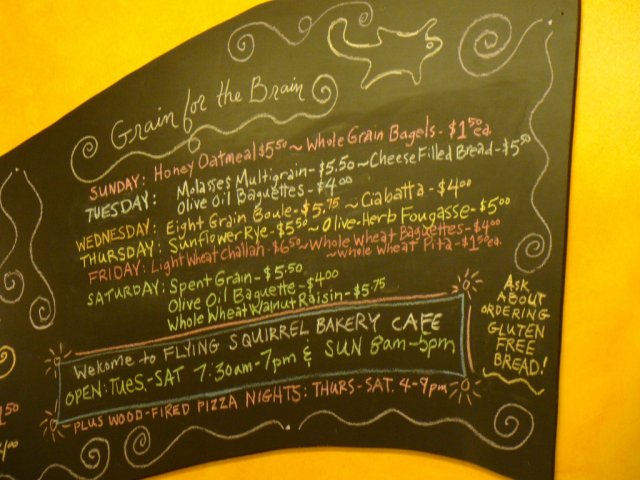 Grain for the Brain
SUNDAY: Honey Oatmeal $5.50 ~ Whole Grain Bagels - $1.50 ea.
TUESDAY: Molasses Multigrain - $5.50 ~ Cheese Filled Bread - $5.50
Olive Oil Baguettes - $4.00
WEDNESDAY: Eight Grain Boule - $5.75 ~ Ciabatta - $4.00
THURSDAY: Sunflower Rye - $5.50 ~ Olive-Herb Fougasse - $5.00
FRIDAY: Light Wheat Challah - $6.50 ~ Whole Wheat Baguettes - $4.00
~ Whole Wheat Pita - $1.50 ea.
SATURDAY: Spent Grain - $5.50
Olive Oil Baguette - $4.00
Whole Wheat Walnut Raisin - $5.75
Welcome to FLYING SQUIRREL BAKERY CAFE
OPEN: TUES.-SAT 7:30am-7pm & SUN 8am-5pm
PLUS WOOD-FIRED PIZZA NIGHTS: THURS-SAT. 4-9pm
ASK
ABOUT
ORDERING
GLUTEN
FREE
BREAD!